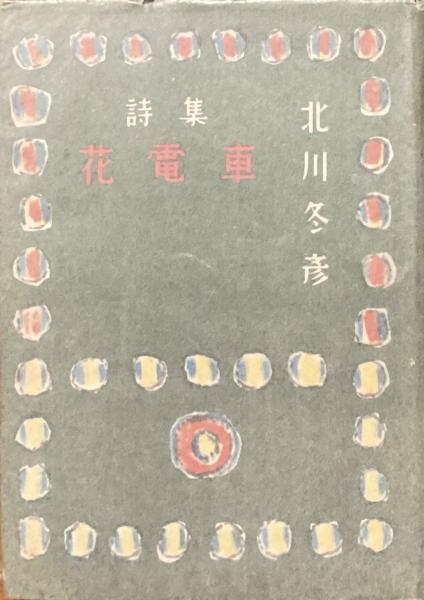 北川冬彦
詩集
花電車